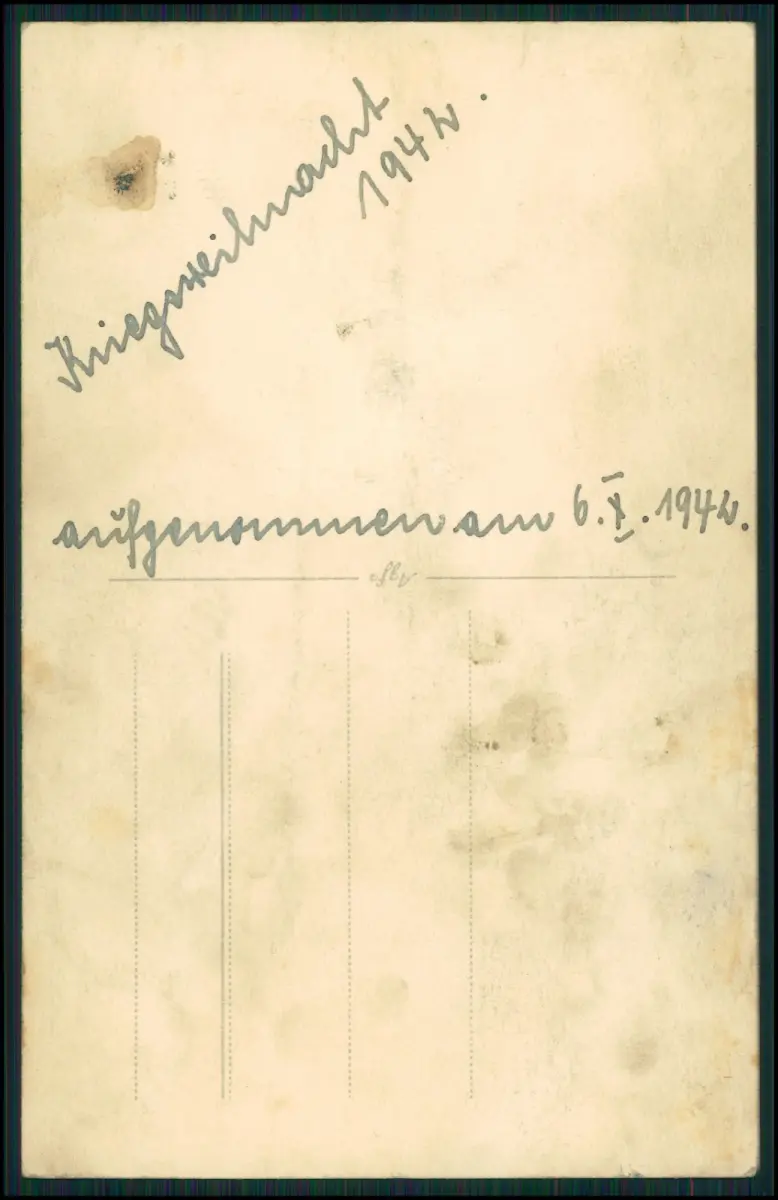 Kriegsweihnacht
1942.
aufgenommen am 6. X. 1942.